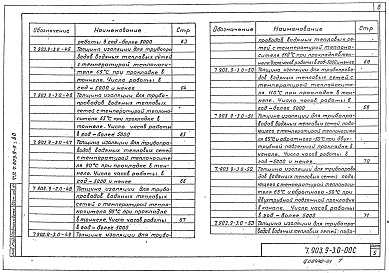 Обозначение Наименование Стр
работы в год - более 5000 63
7.903.9-3.0-45 Толщина изоляции для трубопро-
водов водяных тепловых сетей
с температурой теплоноси-
теля 65°С при прокладке в
тоннеле. Число часов работы в
год - 5000 и менее 64
7.903.9-3.0-46 Толщина изоляции для тру-
бопроводов водяных тепловых
сетей с температурой теплоно-
сителя 65°С при прокладке в
тоннеле. Число часов работы
в год - более 5000 65
7.903.9-3.0-47 Толщина изоляции для трубопро-
водов водяных тепловых се-
тей с температурой теплоноси-
теля 90°С при прокладке в тон-
неле. Число часов работы в
год - 5000 и менее 66
7.903.9-3.0-48 Толщина изоляции для трубо-
проводов водяных тепловых
сетей с температурой тепло-
носителя 90°С при прокладке
в тоннеле. Число часов работы
в год - более 5000 67
7.903.9-3.0-49 Толщина изоляции для трубо-
Обозначение Наименование Стр
проводов водяных тепловых се-
тей с температурой теплоно-
сителя 110°С при прокладке в тон-
неле. Число часов работы в год - 5000 и менее 68
7.903.9-3.0-50 Толщина изоляции для трубопро-
водов водяных тепловых сетей
с температурой теплоносителя
110°С при прокладке в тон-
неле. Число часов работы в
год - более 5000 69
7.903.9-3.0-51 Толщина изоляции для трубопро-
водов водяных тепловых сетей, пода-
ющего с температурой теплоносите-
ля 65°С и обратного - 50°С при двух-
трубной подземной прокладке
в канале. Число часов работы в
год - 5000 и менее 70
7.903.9-3.0-52 Толщина изоляции для трубопро-
водов водяных тепловых сетей, пода-
ющего с температурой теплоноси-
теля 65°С и обратного - 50°С при
двухтрубной подземной прокладке
в канале. Число часов работы
в год - более 5000 71
7.903.9-3.0-53 Толщина изоляции для трубопро-
водов водяных тепловых сетей, пода-
7.903.9-3.0-00С
5